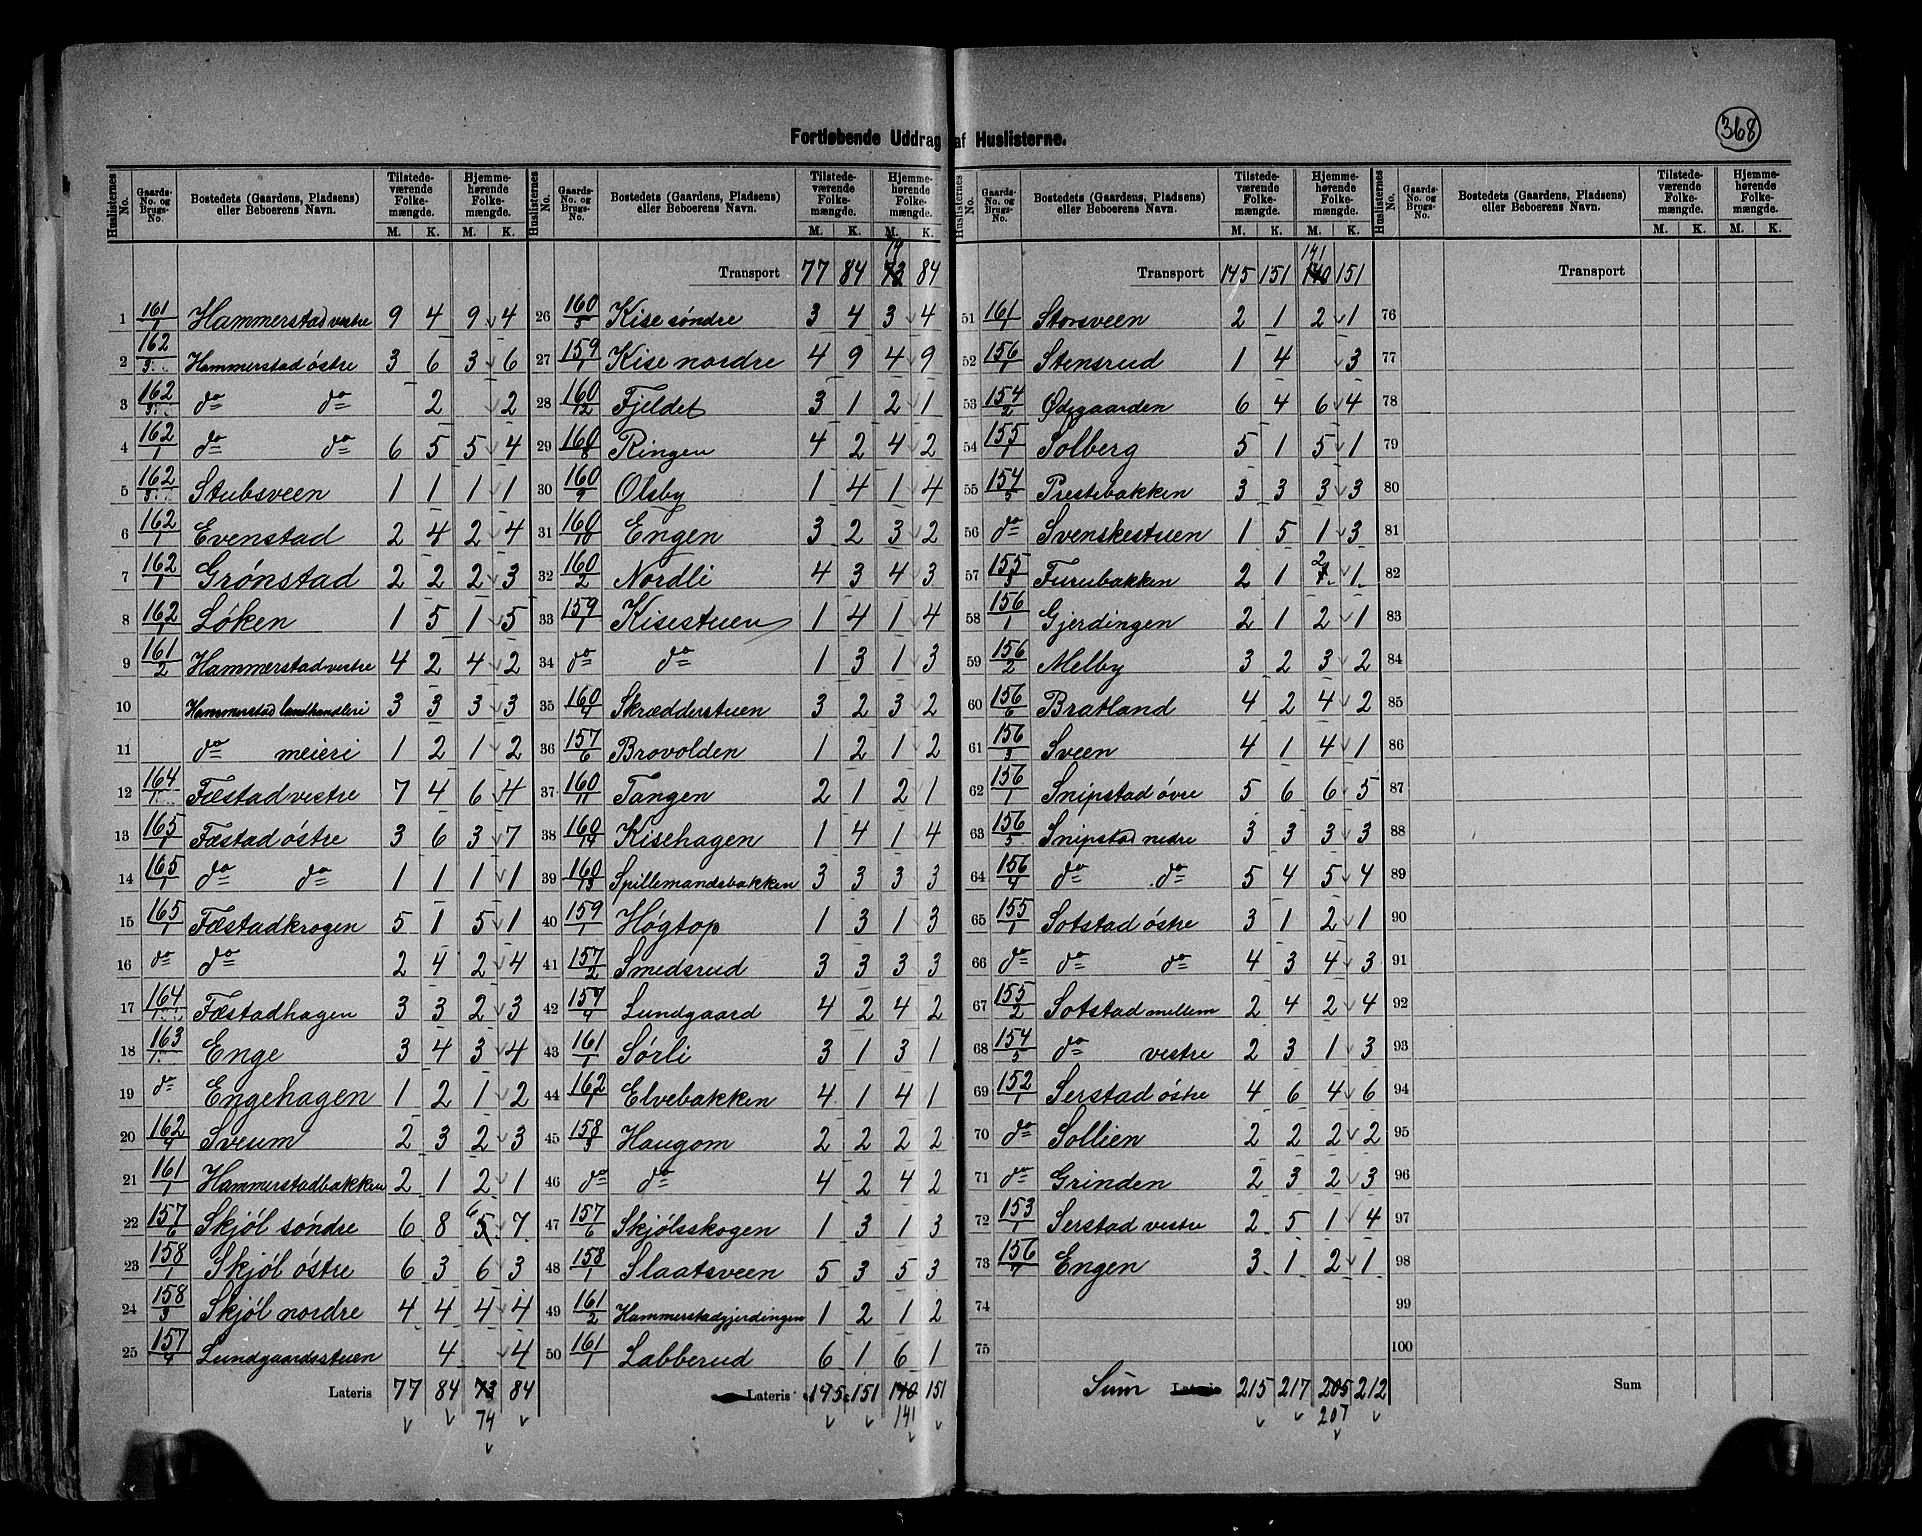 368
Fortløbende Uddrag af Huslisterne.
Huslisternes No. | Gaards-No. og Brugs-No. | Bostedets (Gaardens, Pladsens) eller Beboerens Navn. | Tilstedeværende Folkemængde. M. K. | Hjemmehørende Folkemængde. M. K.
1 161/1 Hammerstad vestre 9 4 9 4
2 162/3 Hammerstad östre 3 6 3 6
3 162/3 do do 2 2
4 162/1 do do 6 5 5 4
5 162/3 Stubsveen 1 1 1 1
6 162/1 Evenstad 2 4 2 4
7 162/1 Grønstad 2 2 2 3
8 162/1 Løken 1 5 1 5
9 161/2 Hammerstad vestre 4 2 4 2
10 Hammerstad landhandleri 3 3 3 3
11 do meieri 1 2 1 2
12 164/1 Fæstad vestre 7 4 6 4
13 165/1 Fæstad östre 3 6 3 7
14 165/1 do do 1 1 1 1
15 165/1 Fæstadkrogen 5 1 5 1
16 do do 2 4 2 4
17 164/1 Fæstadhagen 3 3 2 3
18 163/1 Enge 3 4 3 4
19 do Engehagen 1 2 1 2
20 162/4 Sveum 2 3 2 3
21 161/1 Hammerstadbakken 2 1 2 1
22 157/6 Skjøl søndre 6 8 5 6 7
23 158/1 Skjøl östre 6 3 6 3
24 158/3 Skjøl nordre 4 4 4 4
25 157/4 Lundgaardsstuen 4 4
Lateris 77 84 73 84
74
Transport 77 84 73 74 84
26 160/5 Kise søndre 3 4 3 4
27 159/1 Kise nordre 4 9 4 9
28 160/12 Fjeldet 3 1 2 1
29 160/8 Ringen 4 2 4 2
30 160/9 Olsby 1 4 1 4
31 160/10 Engen 3 2 3 2
32 160/2 Nordli 4 3 4 3
33 159/1 Kisestuen 1 4 1 4
34 do do 1 3 1 3
35 160/4 Skrædderstuen 3 2 3 2
36 157/6 Brovolden 1 2 1 2
37 160/11 Tangen 2 1 2 1
38 160/14 Kisehagen 1 4 1 4
39 160/13 Spillemandsbakken 3 3 3 3
40 159/1 Høgtop 1 3 1 3
41 157/2 Smedsrud 3 3 3 3
42 157/4 Lundgaard 4 2 4 2
43 161/1 Sørli 3 1 3 1
44 162/1 Elvebakken 4 1 4 1
45 158/3 Haugom 2 2 2 2
46 do do 4 2 4 2
47 157/6 Skjølsskogen 1 3 1 3
48 158/1 Slaatsveen 5 3 5 3
49 161/2 Hammerstadgjerdingen 1 2 1 2
50 161/1 Labberud 6 1 6 1
Lateris 145 151 140 151
141
Transport 145 151 140 141 151
51 161/1 Storsveen 2 1 2 1
52 156/1 Stensrud 1 4 3
53 154/2 Ødegaarden 6 4 6 4
54 155/1 Solberg 5 1 5 1
55 154/5 Prestebakken 3 3 3 3
56 do Svenskestuen 1 5 1 3
57 155/3 Furubakken 2 1 1 2 1
58 156/1 Gjerdingen 2 1 2 1
59 156/2 Melby 3 2 3 2
60 156/6 Bratland 4 2 4 2
61 156/3 Sveen 4 1 4 1
62 156/1 Snipstad øvre 5 6 6 5
63 156/5 Snipstad nedre 3 3 3 3
64 156/4 do do 5 4 5 4
65 155/1 Sotstad östre 3 1 2 1
66 do do do 4 3 4 3
67 155/2 Sotstad mellem 2 4 2 4
68 154/5 do vestre 2 3 1 3
69 152/1 Serstad östre 4 6 4 6
70 do Sollien 2 2 2 2
71 do Grinden 2 3 2 3
72 153/1 Serstad vestre 2 5 1 4
73 156/7 Engen 3 1 2 1
74
75
Sum Lateris 215 217 205 212
207
Transport
76
77
78
79
80
81
82
83
84
85
86
87
88
89
90
91
92
93
94
95
96
97
98
99
100
Sum